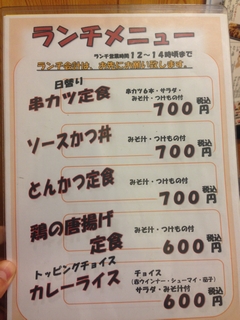 ランチメニュー
ランチ営業時間 12～14時頃まで
ランチ会計は、お先にお願い致します。
日替り
串カツ定食
串カツ6本・サラダ・
みそ汁・つけもの付
税込
700円
ソースかつ丼
みそ汁・つけもの付
税込
700円
とんかつ定食
みそ汁・つけもの付
税込
700円
鶏の唐揚げ
定食
みそ汁・つけもの付
税込
600円
トッピングチョイス
カレーライス
チョイス
(赤ウインナー・シューマイ・茄子)
サラダ・みそ汁付
税込
600円